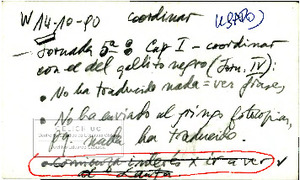 W 14-10-90 coordinar (USADO)
Jornada 5ª : Cap I - coordinar
con el del gallito negro (Jorn. IV):
• No ha traducido nada = ver frases
• No ha enviado al pringo fotocopias,
pq. nada ha traducido
• Comienza interés x ir a ver
a